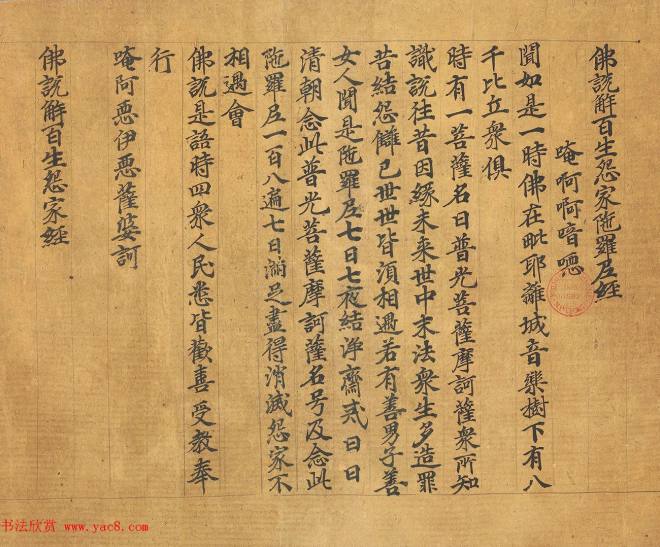 佛説解百生怨家陁羅尼經
唵啊啊喑噁
聞如是一時佛在毗耶離城音樂樹下有八
千比丘衆俱
時有一菩薩名曰普光菩薩摩訶薩衆所知
識説往昔因緣未来世中末法衆生多造罪
苦結怨讎已世世皆湏相遇若有善男子善
女人聞是陁羅尼七日七夜結浄齋戒日日
清朝念此普光菩薩摩訶薩名号及念此
陁羅尼一百八遍七日滿足盡得消滅怨家不
相遇會
佛説是語時四衆人民悉皆歡喜受教奉
行
唵阿悪伊悪薩婆訶
佛説解百生怨家經
书法欣赏 www.yac8.com